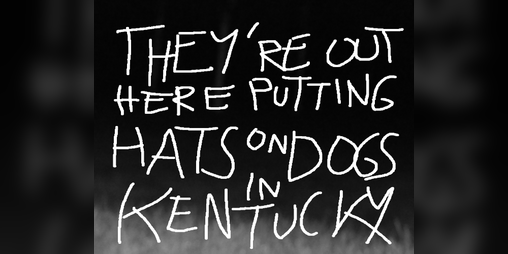 THEY'RE OUT
HERE PUTTING
HATS ON DOGS
IN
KENTUCKY